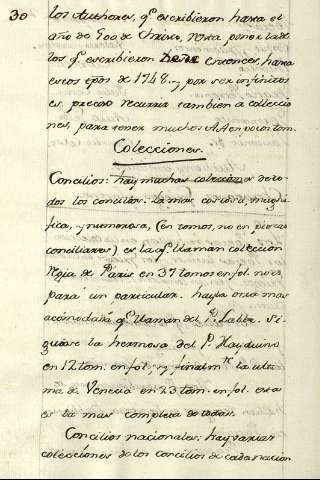 30
los Authores, q.e escribieron hasta el
año de 800 de Christo, resta poner los de
los q.e escribieron desde entonces, hasta
estos tpos de 1748. y por ser infinitos
es preciso recurrir tambien a coleccio
nes, para tener muchos AA en pocos tom.
Colecciones.
Concilios: hay muchas colecciones de to-
dos los concilios. la mas copiosa, magni
fica, y numerosa, (en tomos, no en piezas
conciliares) es la q.e llaman coleccion
Regia de Paris en 37 tomos en fol. no es
para un particular. hayla otra mas
acomodada q.e llaman del P. Labbe. Si
guiose la hermosa del P. Harduino
en 12 tom. en fol., y finalm.te la ulti
ma de Venecia en 23 tom. en fol. esta
es la mas completa de todas.
Concilios nacionales: hay varias
colecciones de los concilios de cada nacion